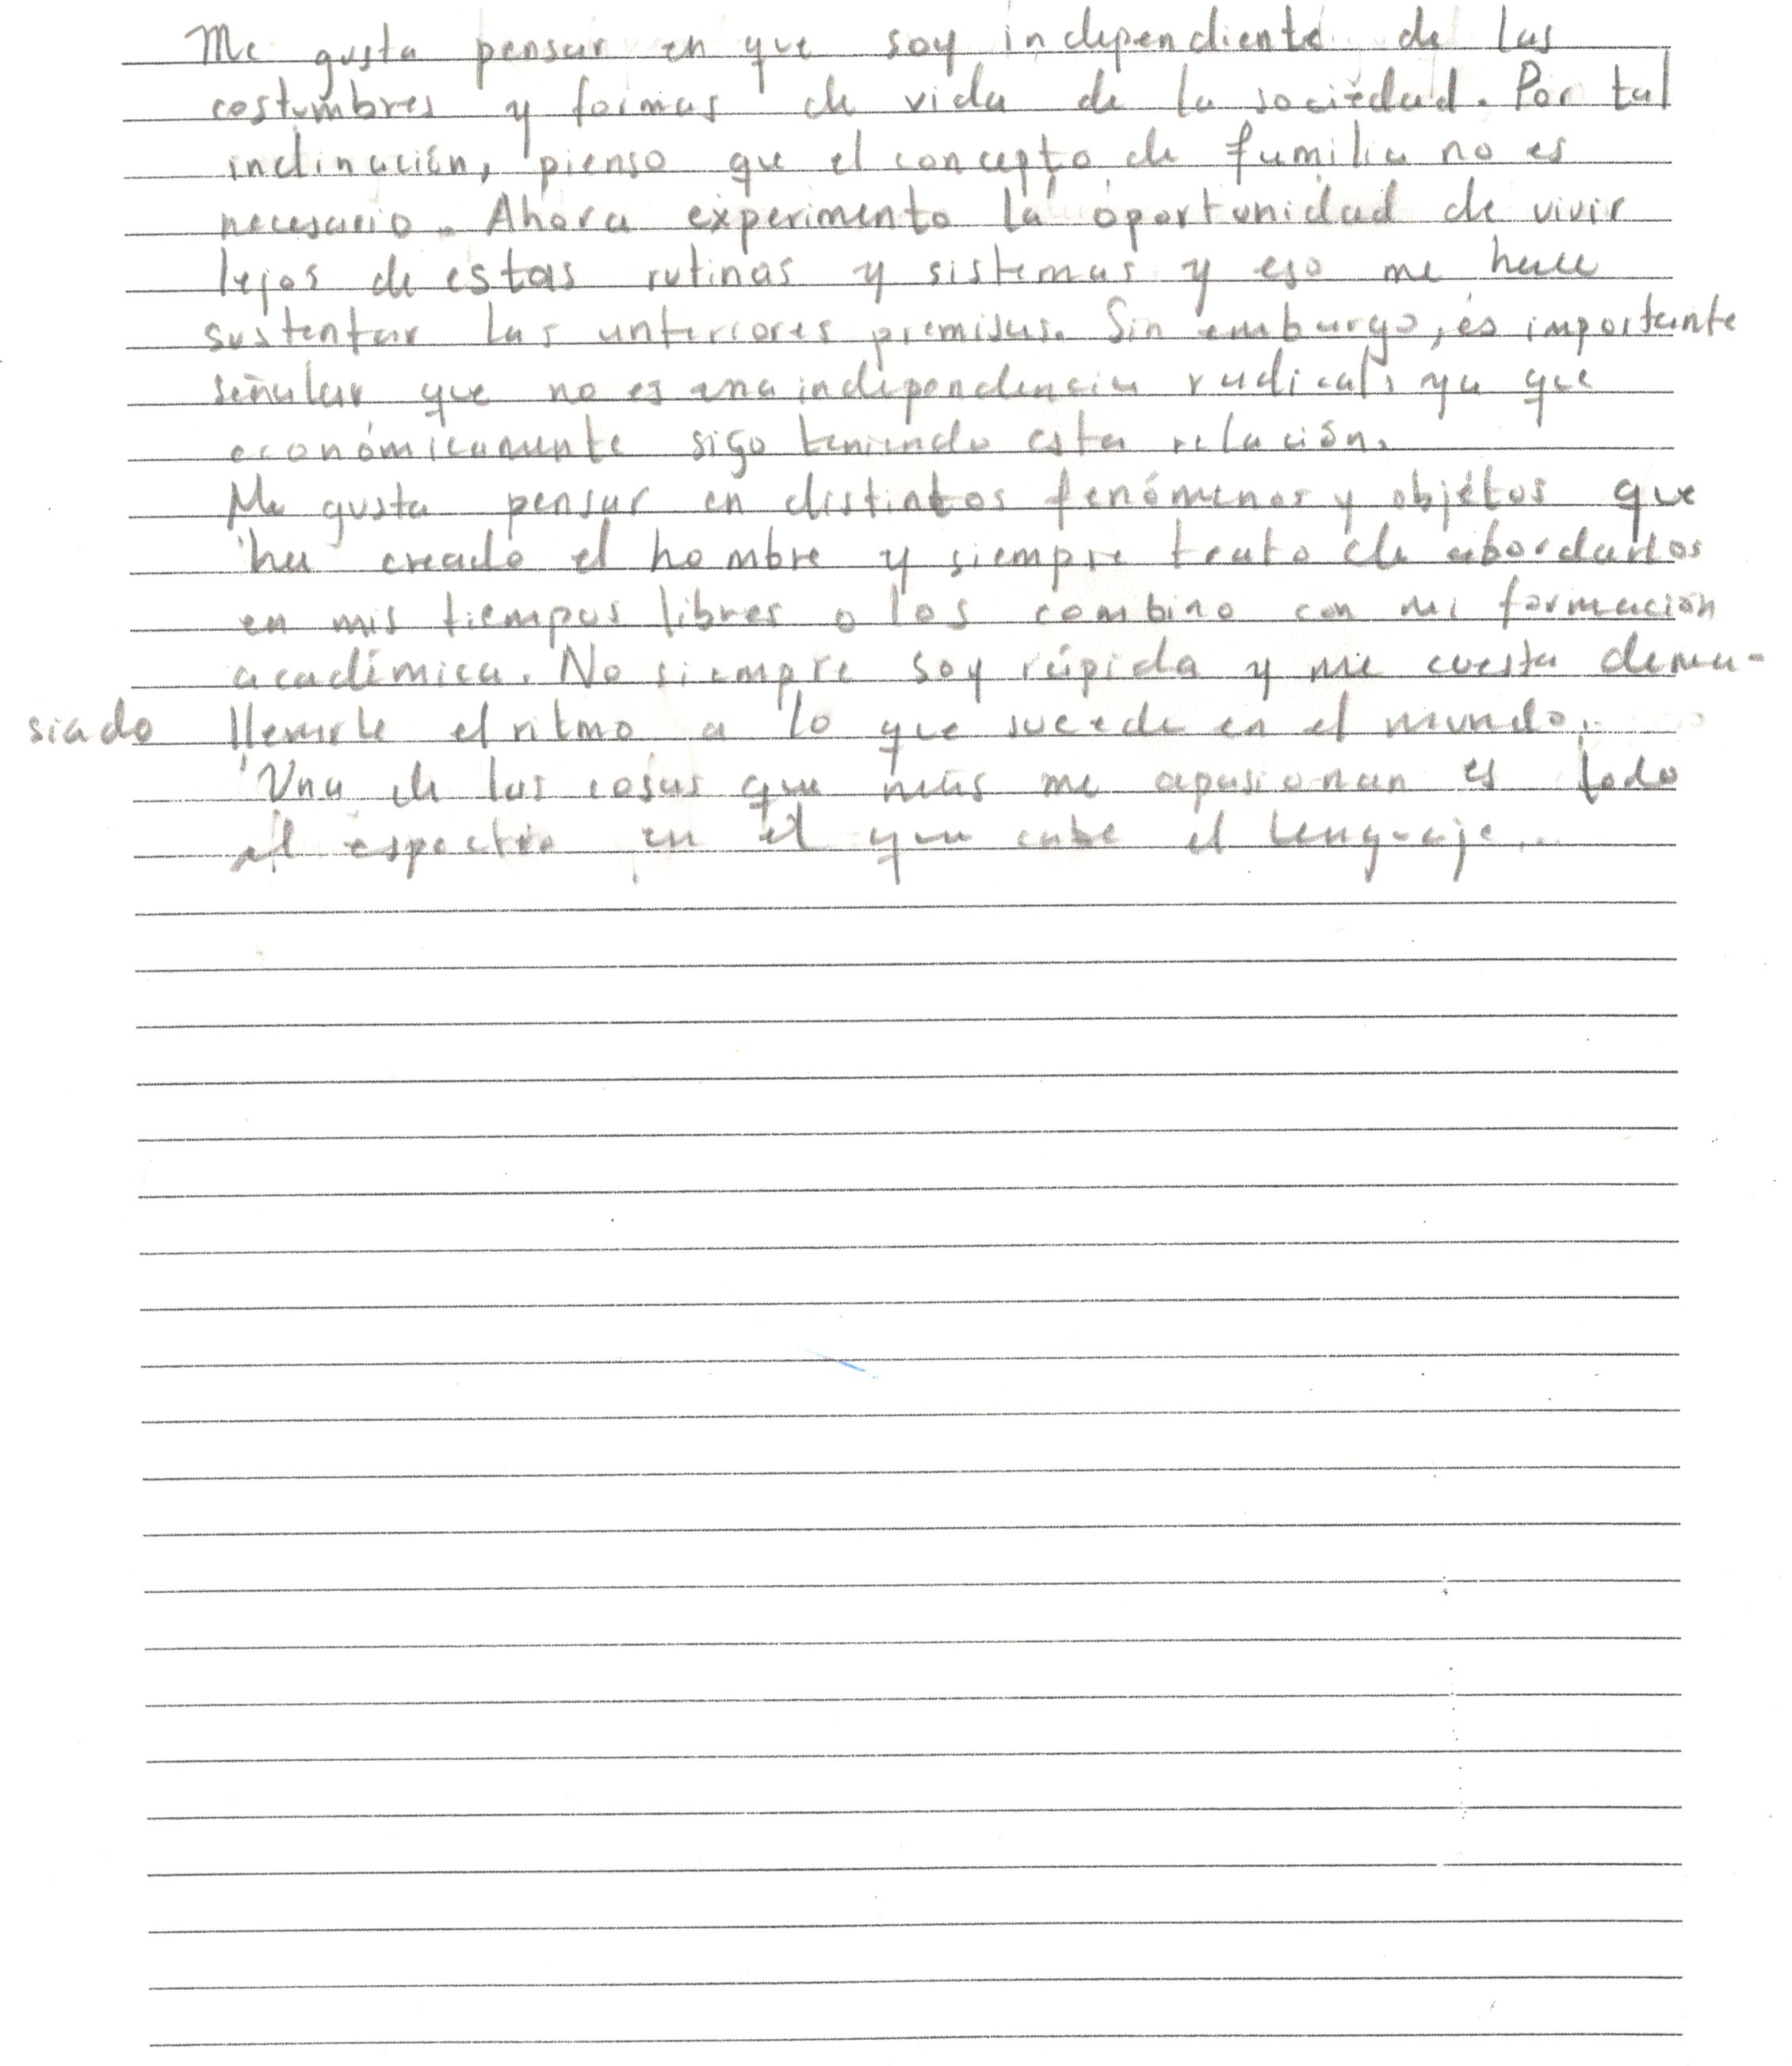 Me gusta pensar en que soy independiente de las
costumbres y formas de vida de la sociedad. Por tal
inclinación, pienso que el concepto de familia no es
necesario. Ahora experimento la oportunidad de vivir
lejos de estas rutinas y sistemas y eso me hace
sustentar las anteriores premisas. Sin embargo, es importante
señalar que no es una independencia radical, ya que
económicamente sigo teniendo esta relación.
Me gusta pensar en distintos fenómenos y objétos que
ha creado el hombre y siempre trato de abordarlos
en mis tiempos libres o los combino con mi formación
académica. No siempre soy rápida y me cuesta dema-
siado llevarle el ritmo a lo que sucede en el mundo.
Una de las cosas que más me apasionan es todo
el espectro en el que cabe el lenguaje.